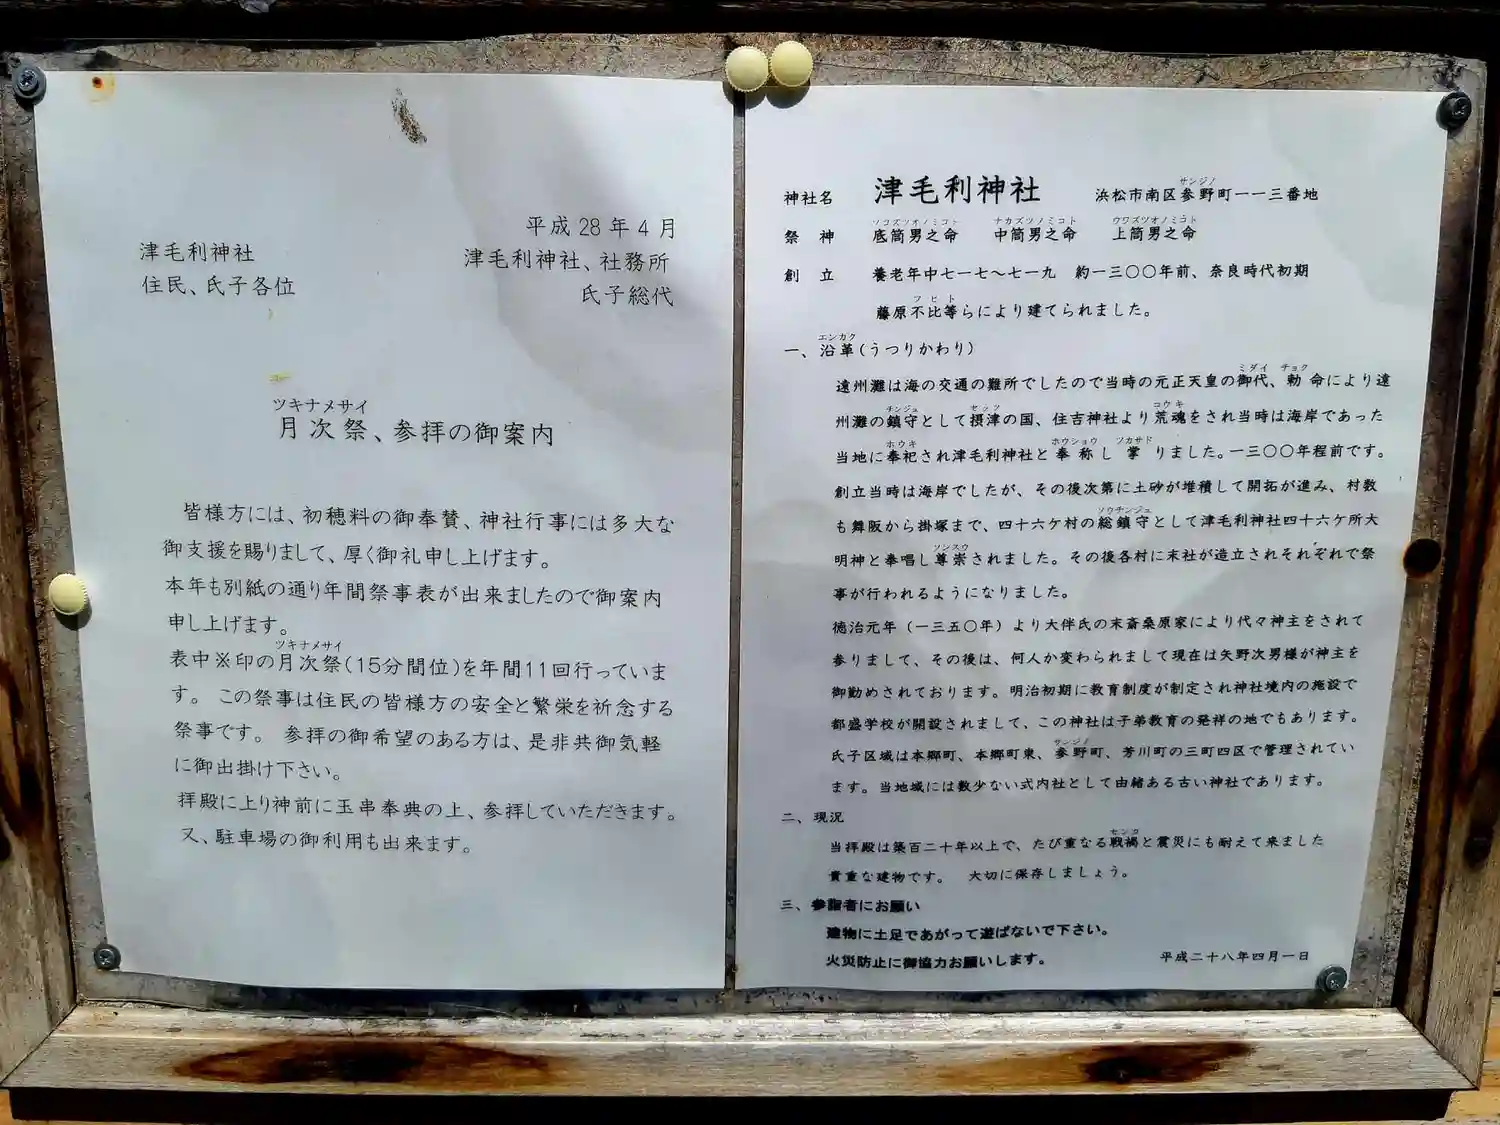 平成28年4月
津毛利神社
津毛利神社、社務所
住民、氏子各位
氏子総代
ツキナメサイ
月次祭、参拝の御案内
皆様方には、初穂料の御奉賛、神社行事には多大な
御支援を賜りまして、厚く御礼申し上げます。
本年も別紙の通り年間祭事表が出来ましたので御案内
申し上げます。
ツキナメサイ
表中※印の月次祭(15分間位)を年間11回行っていま
す。この祭事は住民の皆様方の安全と繁栄を祈念する
祭事です。参拝の御希望のある方は、是非共御気軽
に御出掛け下さい。
拝殿に上り神前に玉串奉典の上、参拝していただきます。
又、駐車場の御利用も出来ます。
サンジノ
神社名 津毛利神社 浜松市南区参野町一一三番地
ソコズツオノミコト ナカズツノミコト ウワズツオノミコト
祭神 底筒男之命 中筒男之命 上筒男之命
創立 養老年中七一七〜七一九 約一三〇〇年前、奈良時代初期
フヒト
藤原不比等らにより建てられました。
エンカク
一、沿革(うつりかわり)
ミダイ チョク
遠州灘は海の交通の難所でしたので当時の元正天皇の御代、勅命により遠
チンジュ セッツ コウキ
州灘の鎮守として摂津の国、住吉神社より荒魂をされ当時は海岸であった
ホウキ ホウショウ ツカサド
当地に奉祀され津毛利神社と奉称し掌りました。一三〇〇年程前です。
創立当時は海岸でしたが、その後次第に土砂が堆積して開拓が進み、村数
ソウチンジュ
も舞阪から掛塚まで、四十六ケ村の総鎮守として津毛利神社四十六ケ所大
ソンスウ
明神と奉唱し尊崇されました。その後各村に末社が造立されそれぞれで祭
事が行われるようになりました。
徳治元年(一三五〇年)より大伴氏の末斎桑原家により代々神主をされて
参りまして、その後は、何人か変わられまして現在は矢野次男様が神主を
御勤めされております。明治初期に教育制度が制定され神社境内の施設で
都盛学校が開設されまして、この神社は子弟教育の発祥の地でもあります。
サンジノ
氏子区域は本郷町、本郷町東、参野町、芳川町の三町四区で管理されてい
ます。当地域には数少ない式内社として由緒ある古い神社であります。
二、現況
センカ
当拝殿は築百二十年以上で、たび重なる戦禍と震災にも耐えて来ました
貴重な建物です。 大切に保存しましょう。
三、参詣者にお願い
建物に土足であがって遊ばないで下さい。
火災防止に御協力お願いします。
平成二十八年四月一日